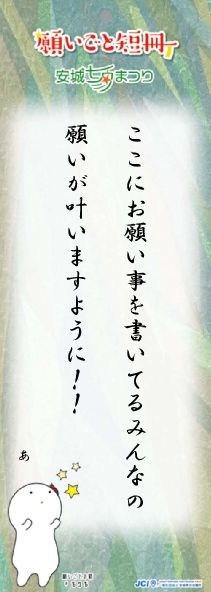 願いごと短冊
安城七夕まつり
ここにお願い事を書いてるみんなの
願いが叶いますように！！
あ
JCI